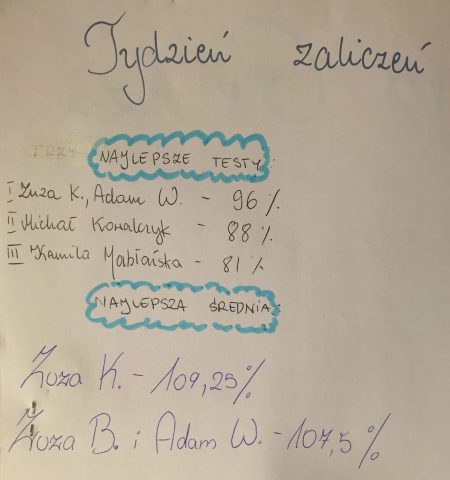 Tydzień zaliczeń
NAJLEPSZE TESTY
I Zuza K., Adam W. - 96 %
II Michał Kowalczyk - 88 %
III Kamila Mabłańska - 81 %
NAJLEPSZA ŚREDNIA
Zuza K. - 109,25%
Zuza B. i Adam W. - 107,5 %